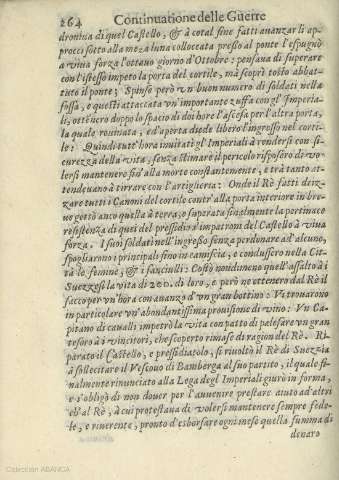 264 Continuatione delle Guerre
dronirsi di quel Castello, & à cotal fine fatti auanzar li ap-
procci sotto alla meza luna collocata presso al ponte l'espugnò
a viua forza l'ottauo giorno d'Ottobre: pensaua di superare
con l'istesso impeto la porta del cortile, mà scoprì tosto abbat-
tuto il ponte; Spinse però vn buon numero di soldati nella
fossa, e questi attaccata vn'importante zuffa con gl'Imperia-
li, ottennero doppo lo spacio di doi hore l'ascesa per l'altra porta,
la quale rouinata, ed aperta diede libero l'ingresso nel corti-
le: Quindi tutt'hora inuitati gl'Imperiali à rendersi con si-
curezza della vita, senza stimare il pericolo risposero di vo-
lersi mantenere fin' alla morte constantemente, e trà tanto at-
tendeuano à tirrare con l'artiglieria: Onde il Rè fatti driz-
zare tutti i Canoni del cortile contr'alla porta interiore in bre-
ue gettò anco quella à terra, e superata finalmente la pertinace
resistenza di quei del pressidio s'impatronì del Castello à viua
forza. I suoi soldati nell'ingresso senza perdonare ad alcuno,
spogliarono i principali sino in camiscia, e condussero nella Cit-
tà le femine, & i fanciulli: Costò nondimeno quell'assalto à i
Suezzesi la vita di 200. di loro, e però ne ottenero dal Rè il
sacco per vn hora con auanzo d'vn gran bottino: Vi trouarono
in particolare vn'abondantissima prouisione di vino: Vn Ca-
pitano di caualli impetrò la vita con patto di palesare vn gran
tesoro à i vincitori, che scoperto rimase di ragion del Rè. Ri-
parato il Castello, e pressidiatolo, si riuoltò il Rè di Suezzia
à sollecitare il Vescouo di Bamberga al suo partito, il quale fi-
nalmente rinunciato alla Lega degl'Imperiali giurò in forma,
e s'obligò di non douer per l'auuenire prestare aiuto ad altri
ch'al Rè, à cui protestaua di volersi mantenere sempre fede-
le, e riuerente, pronto d'esborsare ogni mese quella summa di
denaro
Colección ABANCA